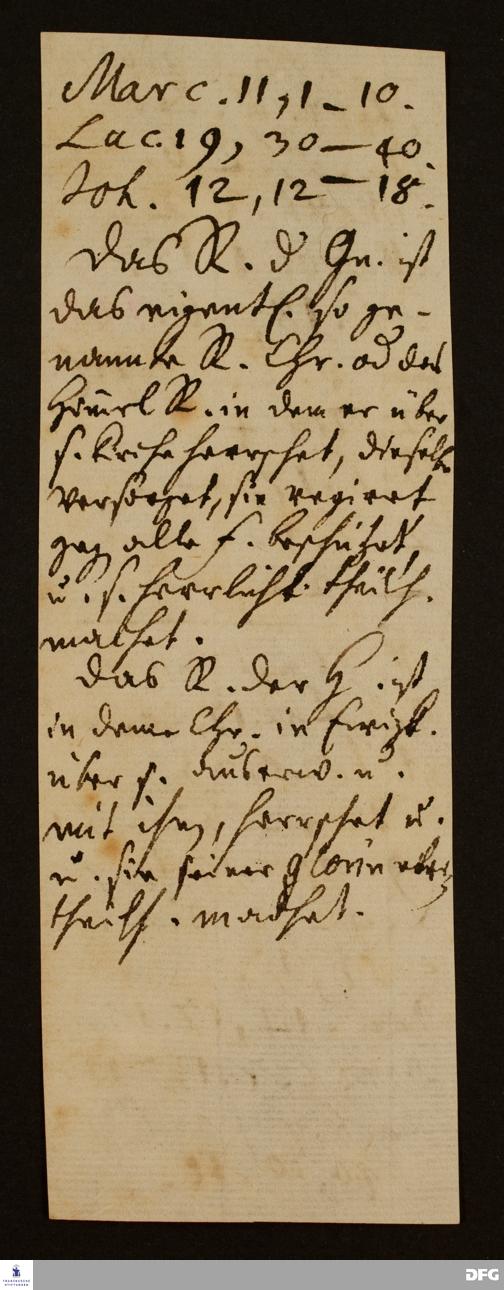 Marc. 11, 1 - 10.
Luc. 19, 30 — 40.
Joh. 12, 12 — 18.
Das R. d Gn. ist
das eigentl. so ge-
nannte R. Chr. od das
R. in dem er über
s. Kirche herrschet, dieselb
versorget, sie regiret
geg alle F. beschützet,
u. s. Herrlichk. theilh.
machet.
Das R. der H. ist
in deme Chr. in Ewigk.
über s. auserw. u.
mit ihn, herrschet u.
u. sie seiner
theilh. machet.
DFG